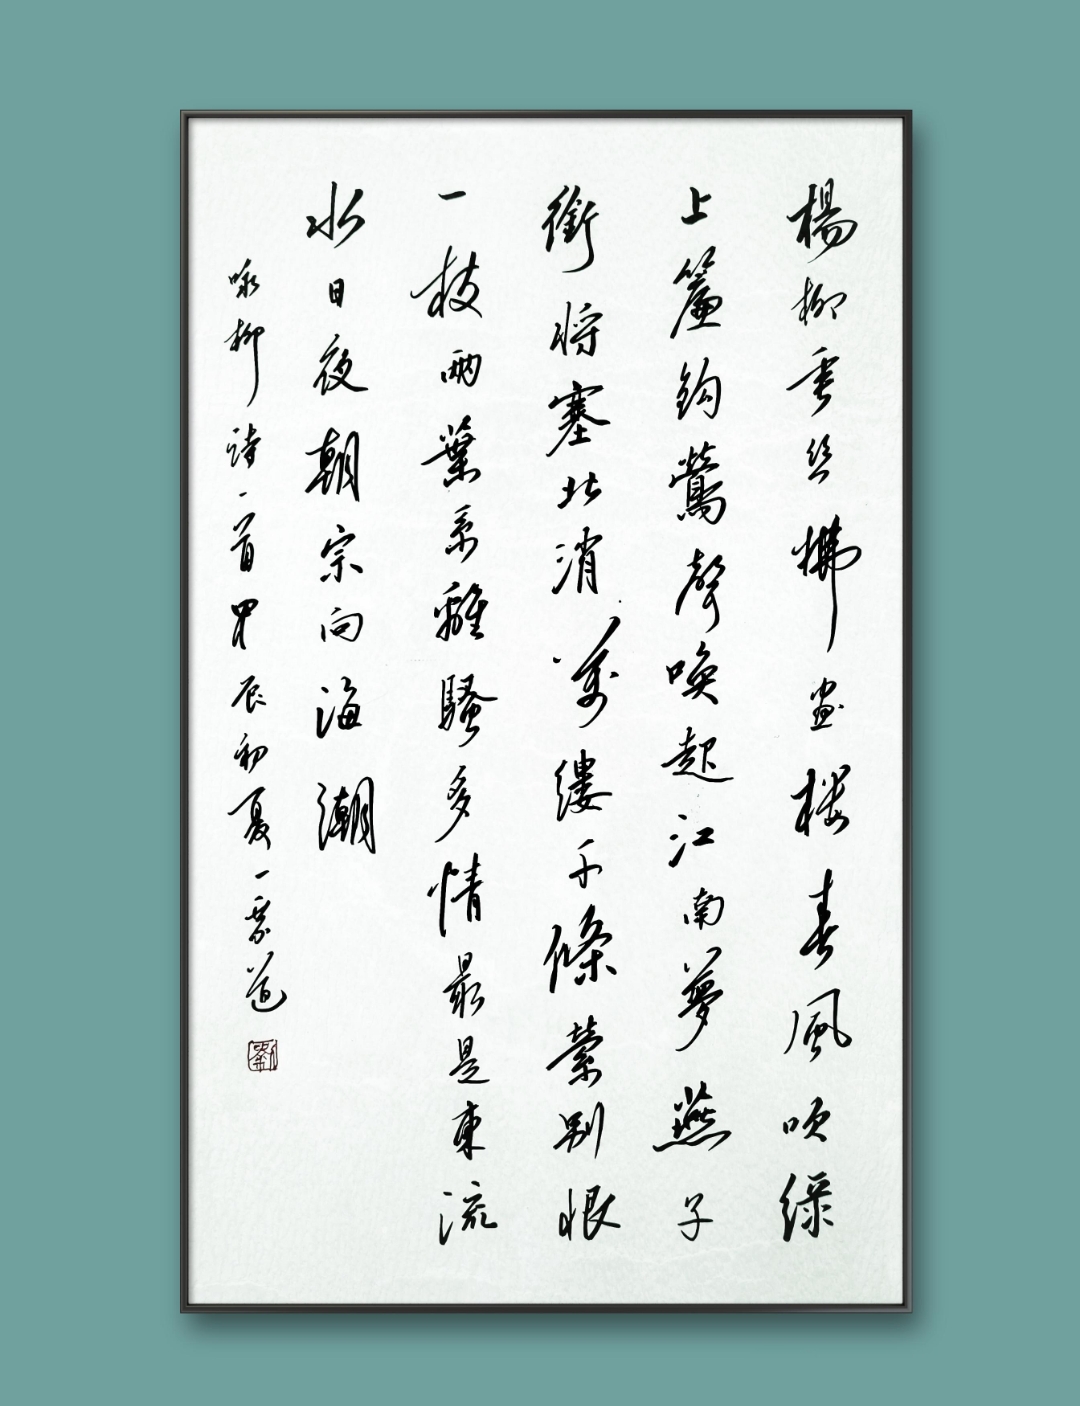 楊柳垂丝拂画楼春風吹緑
上簾鈎鶯聲唤起江南夢燕子
銜将塞北消萬缕千條縈别恨
一枝兩葉系離騷多情最是東流
水日夜朝宗向海潮
咏柳诗一首甲辰初夏一雲道
劉